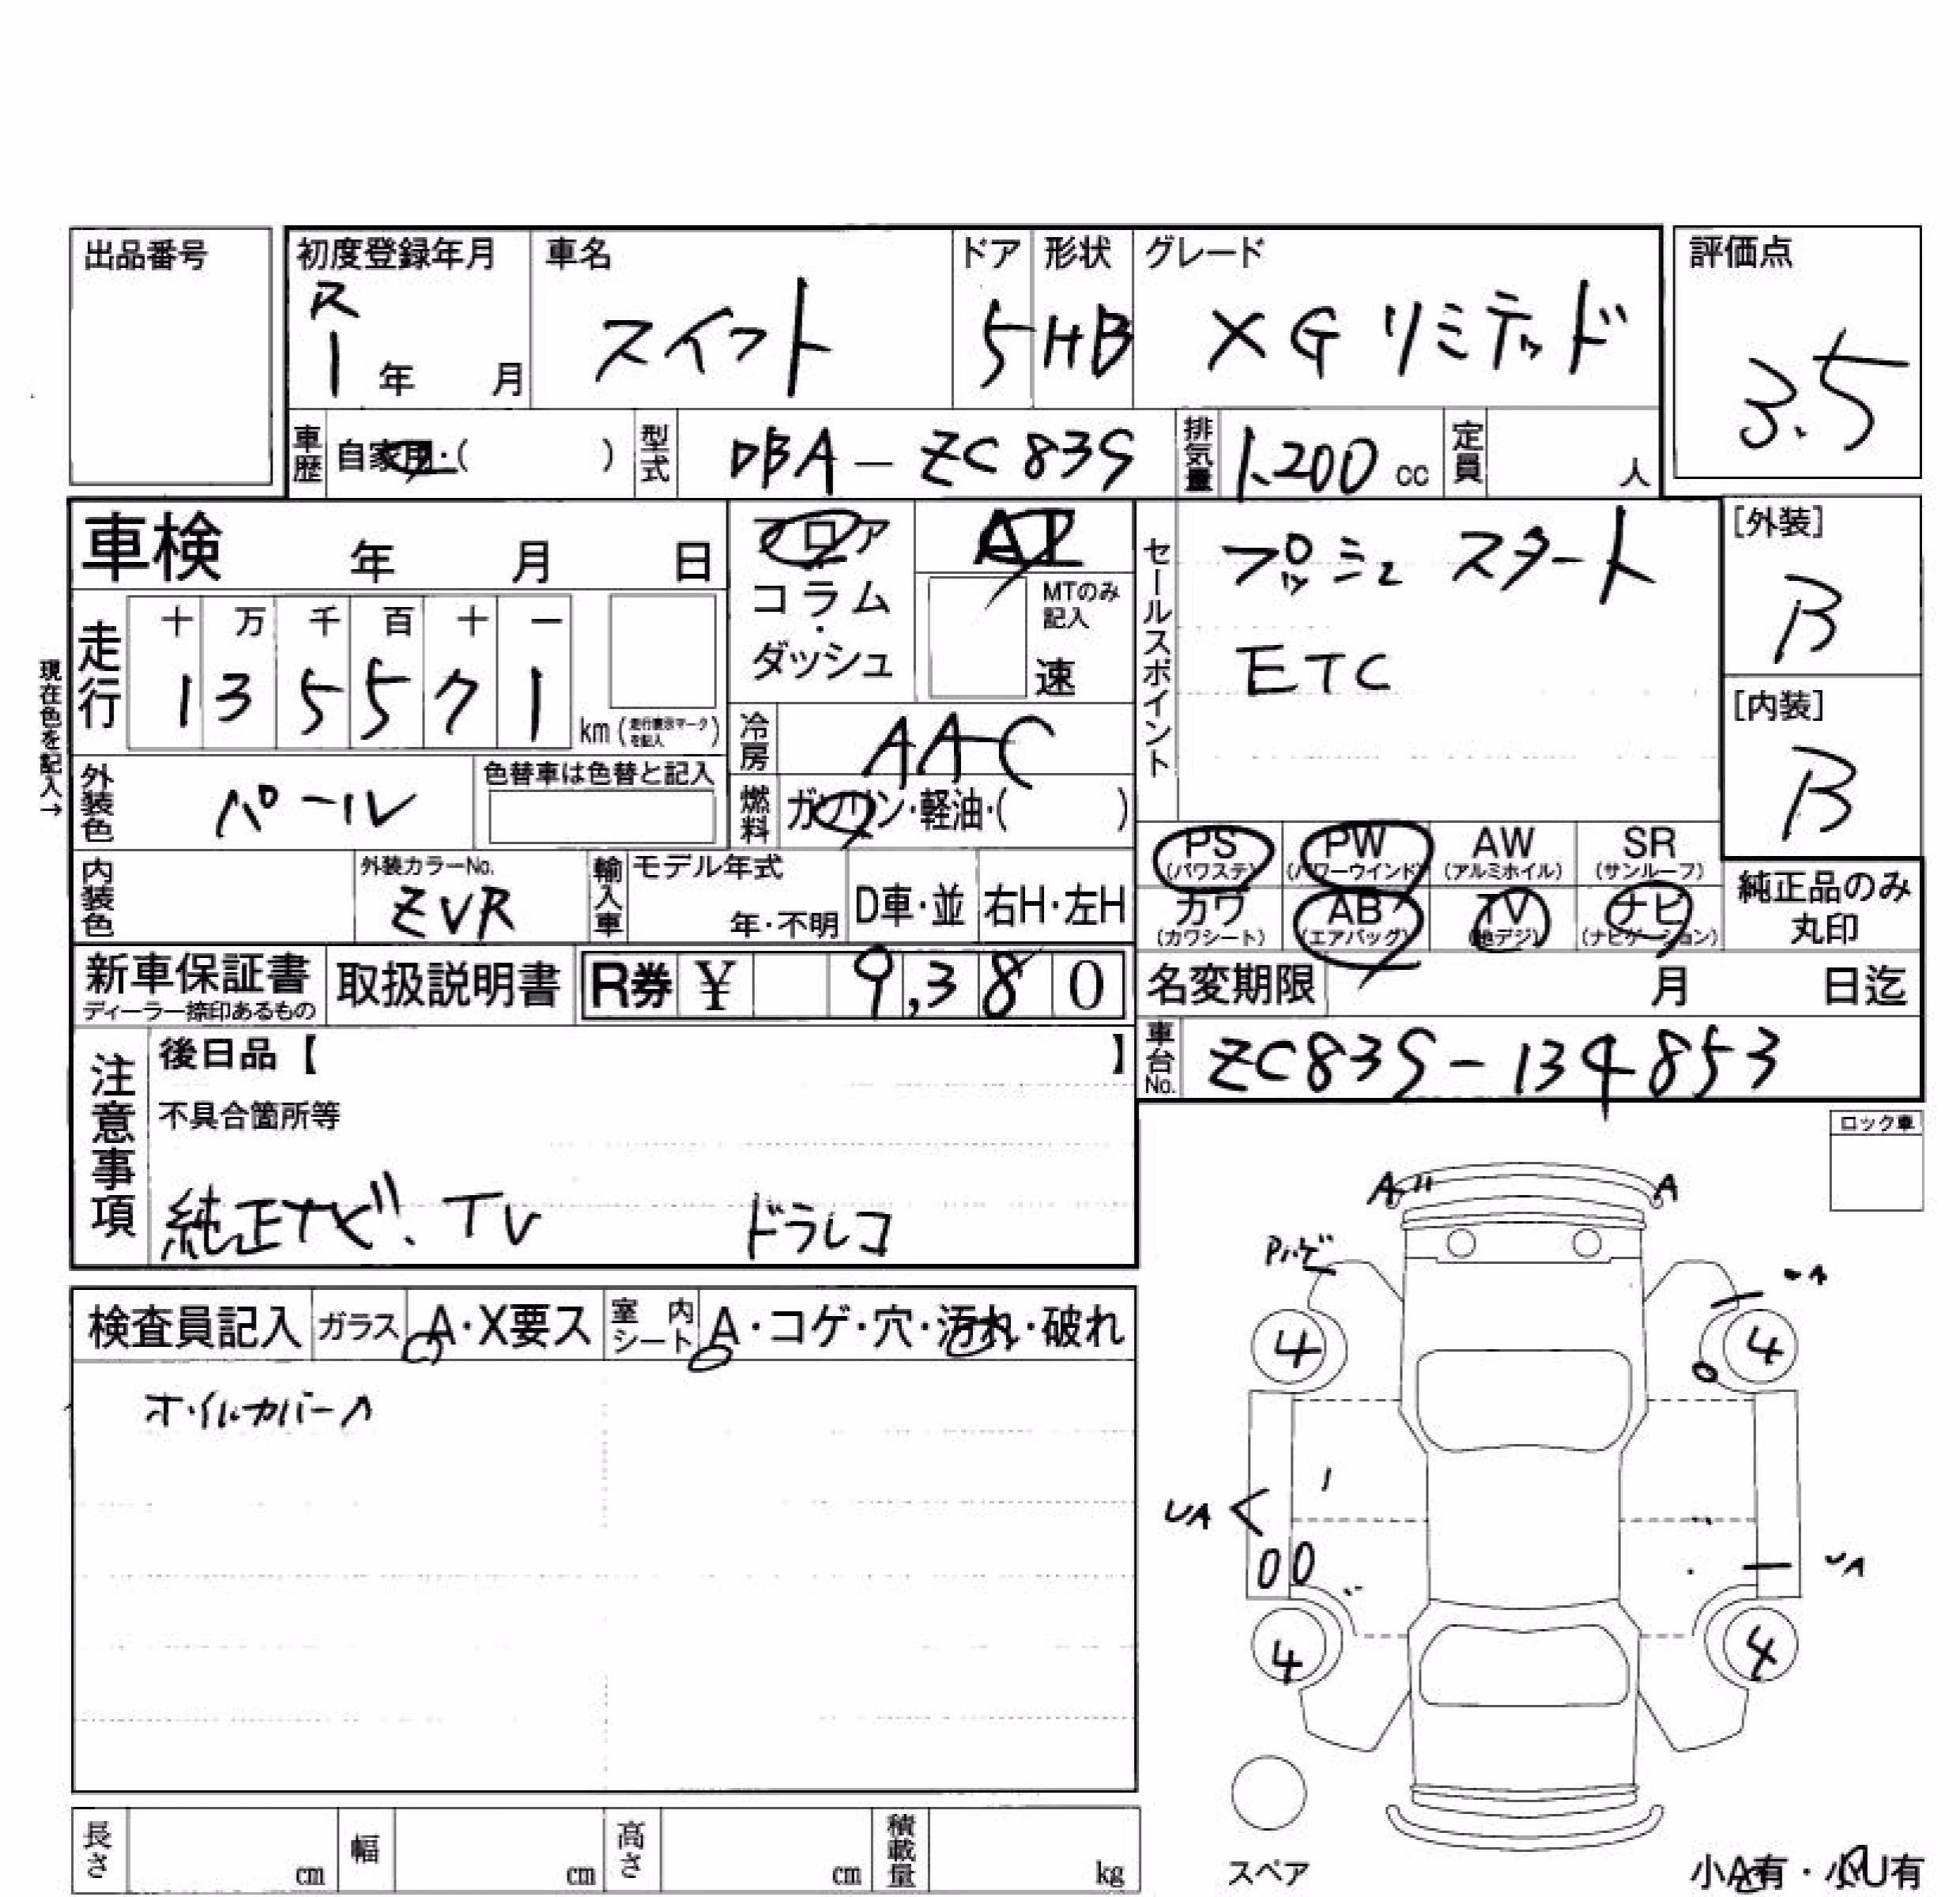 出品番号
初度登録年月 車名 ドア 形状 グレード 評価点
R
1 年 月 スイフト 5 HB XG リミテッド 3.5
車歴 自家用・( ) 型式 DBA-ZC83S 排気量 1,200 cc 定員 人
車検 年 月 日 フロア AT
コラム・ MTのみ記入
ダッシュ 速
セールスポイント プッシュ スタート
ETC
[外装] B
[内装] B
現在色を記入→
走行 十 万 千 百 十 一
1 3 5 5 7 1 km (走行表示マークを記入)
冷房 AAC
外装色 パール 色替車は色替と記入
燃料 ガソリン・軽油・( )
PS (パワステ) PW (パワーウインド) AW (アルミホイル) SR (サンルーフ)
カワ (カワシート) AB (エアバッグ) TV (地デジ) ナビ (ナビゲーション)
純正品のみ
丸印
内装色 外装カラーNo. ZVR 輸入車 モデル年式 年・不明 D車・並 右H・左H
新車保証書 取扱説明書 R券 ¥ 9,380
ディーラー捺印あるもの
名変期限 月 日迄
車台No. ZC83S-134853
注意事項 後日品【 】
不具合箇所等
純正ナビ、TV ドラレコ
ロック車
検査員記入 ガラス A・X要ス 室内シート A・コゲ・穴・汚れ・破れ
ホイルカバーA
A A
Pハゲ
UA
4 4
UA
UA
4 4
スペア
小A有・小U有
長さ cm 幅 cm 高さ cm 積載量 kg